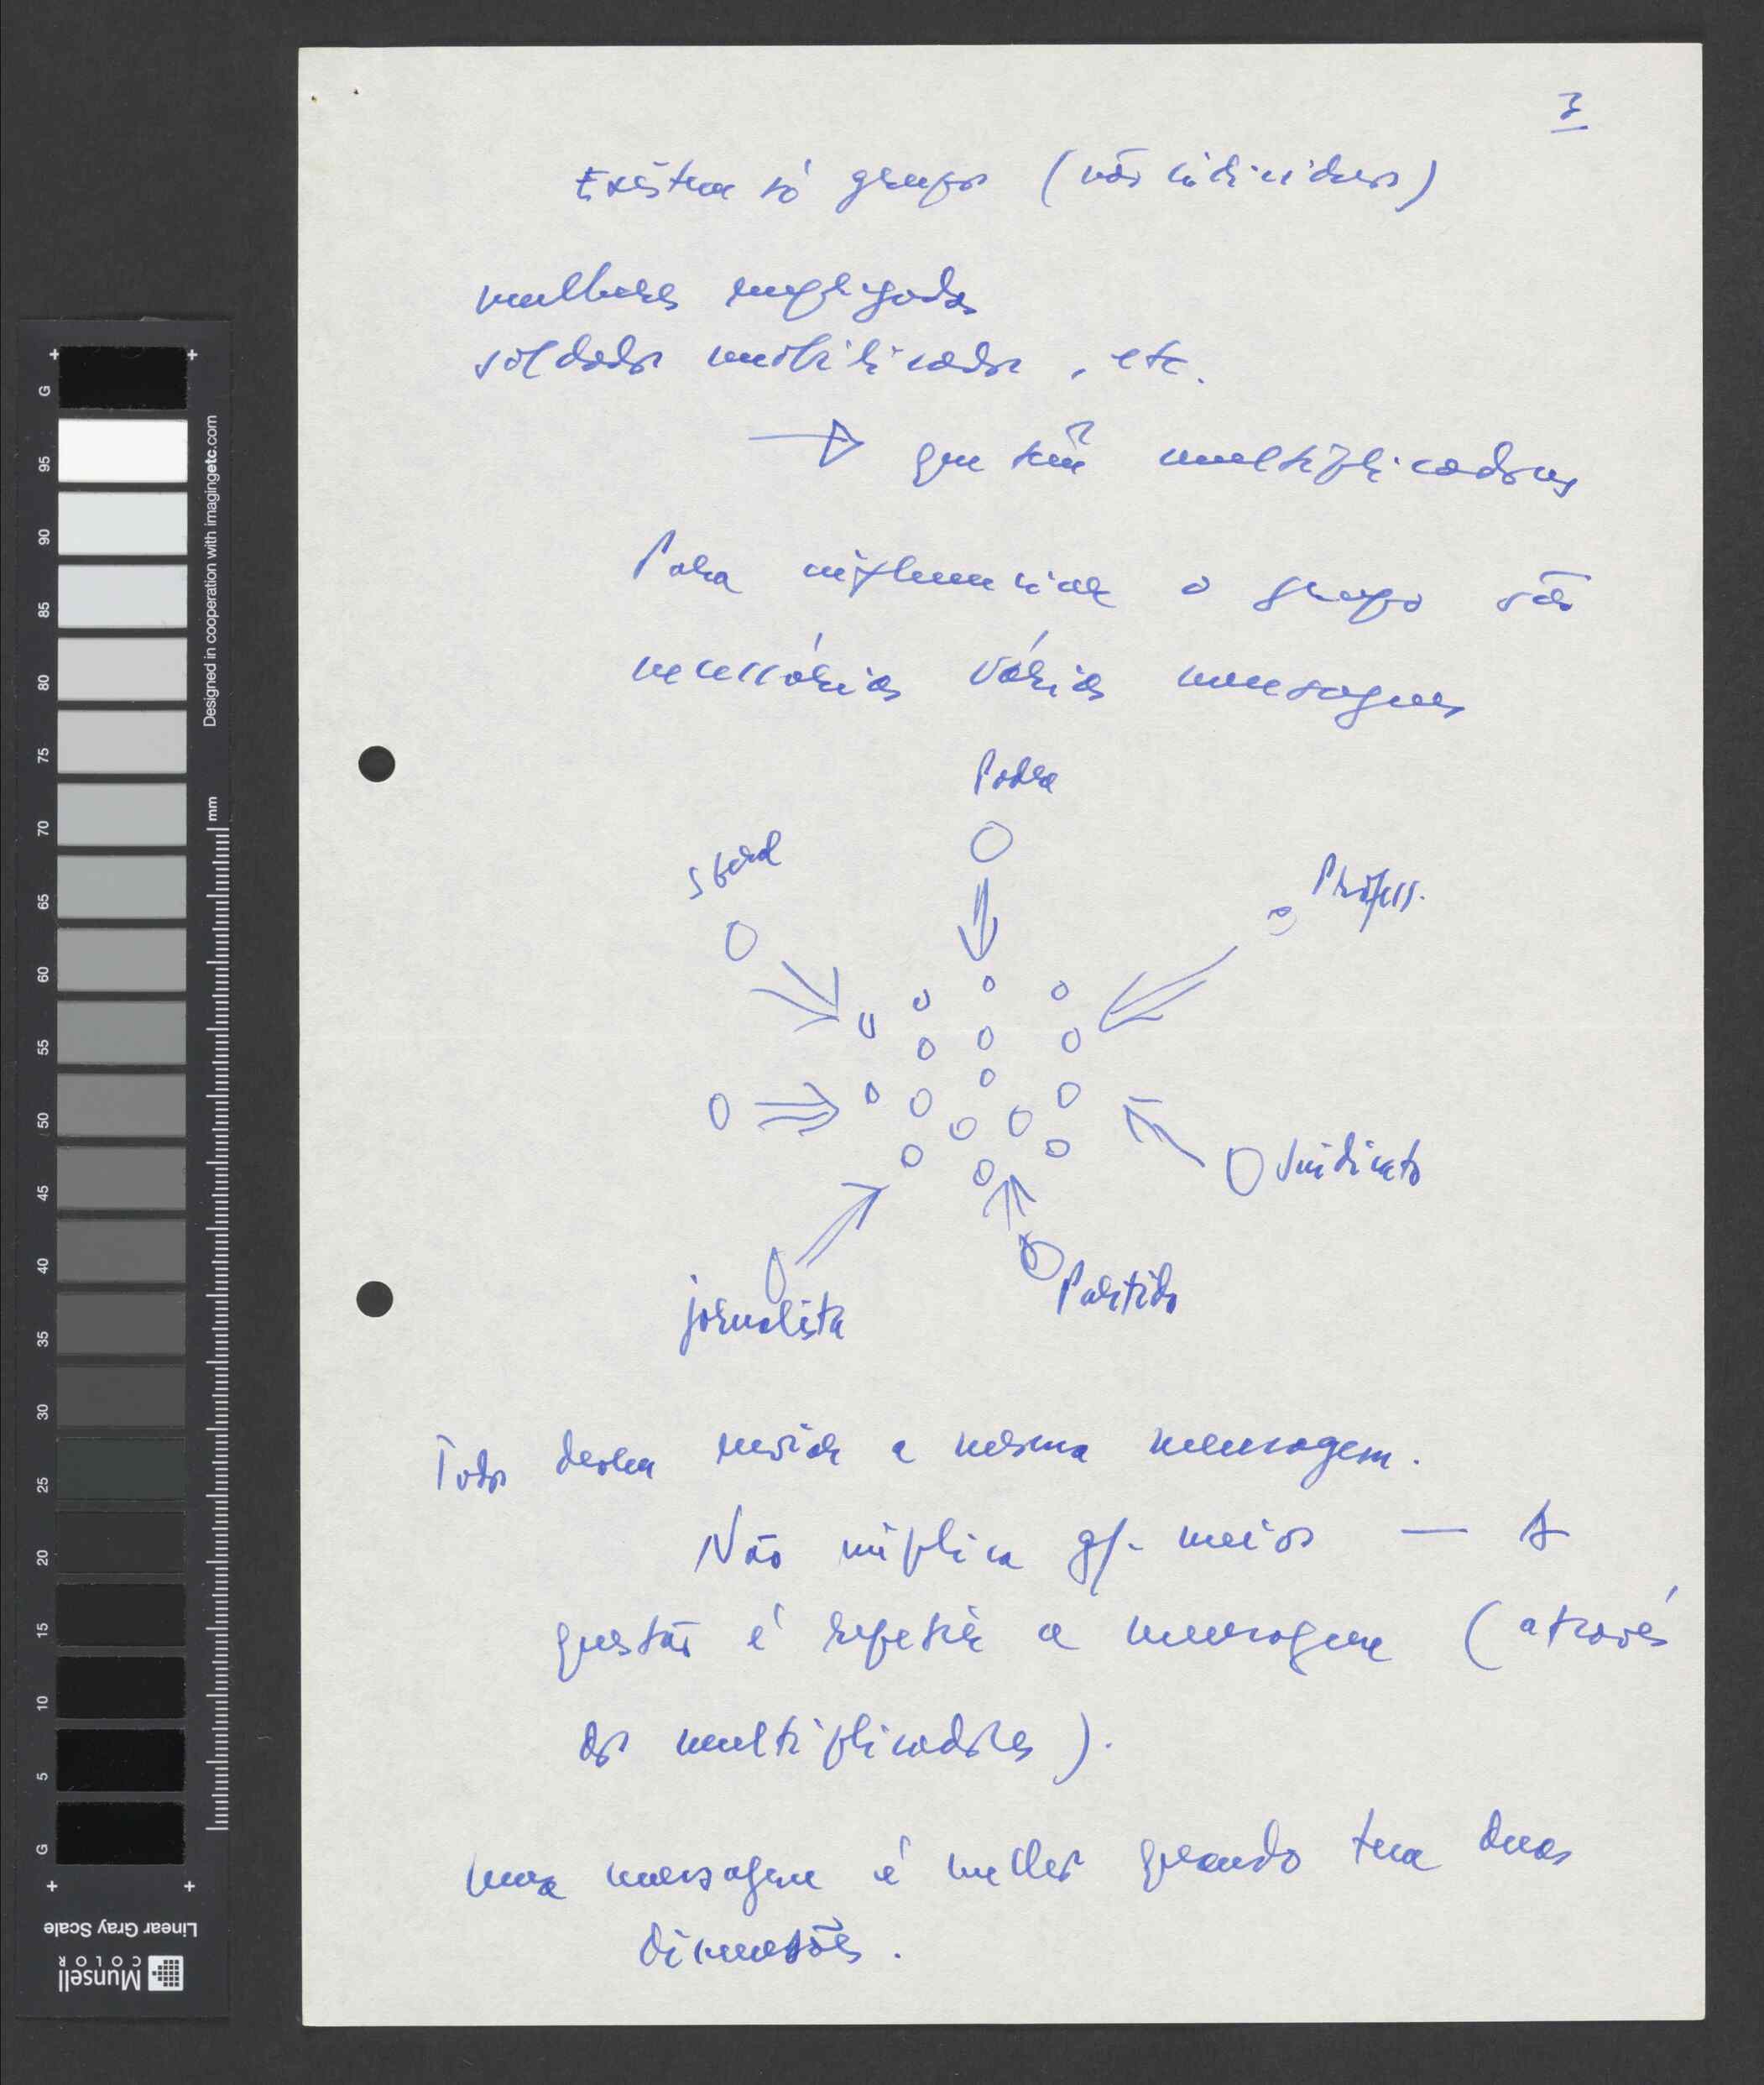 3
Existem só grupos (não indivíduos)
mulheres empregadas
soldados mobilizados, etc.
que têm multiplicadores
Para influenciar o grupo são
necessárias várias mensagens
Padre
Profess.
Sindicato
Partido
jornalista
Todos devem enviar a mesma mensagem.
Não implica gr. meios — A
questão é repetir a mensagem (através
dos multiplicadores).
Uma mensagem é melhor quando tem duas
dimensões.
G
95
90
85
80
75
70
65
60
55
50
45
40
35
30
25
20
15
10
5
G
Designed in cooperation with imagingetc.com
mm
Linear Gray Scale
Munsell
COLOR